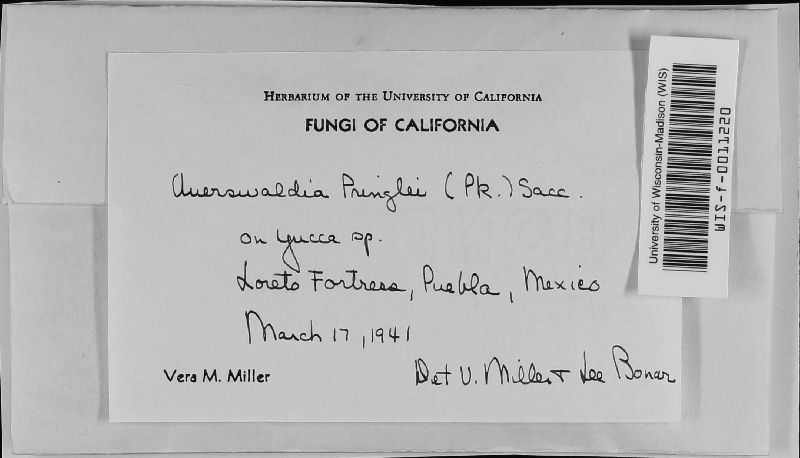 HERBARIUM OF THE UNIVERSITY OF CALIFORNIA
FUNGI OF CALIFORNIA
Auerswaldia Pringlei (Pk.) Sacc.
on Yucca sp.
Loreto Fortress, Puebla, Mexico
March 17, 1941
Vera M. Miller
Det V. Miller & Lee Bonar
University of Wisconsin-Madison (WIS)
WIS-f-0011220